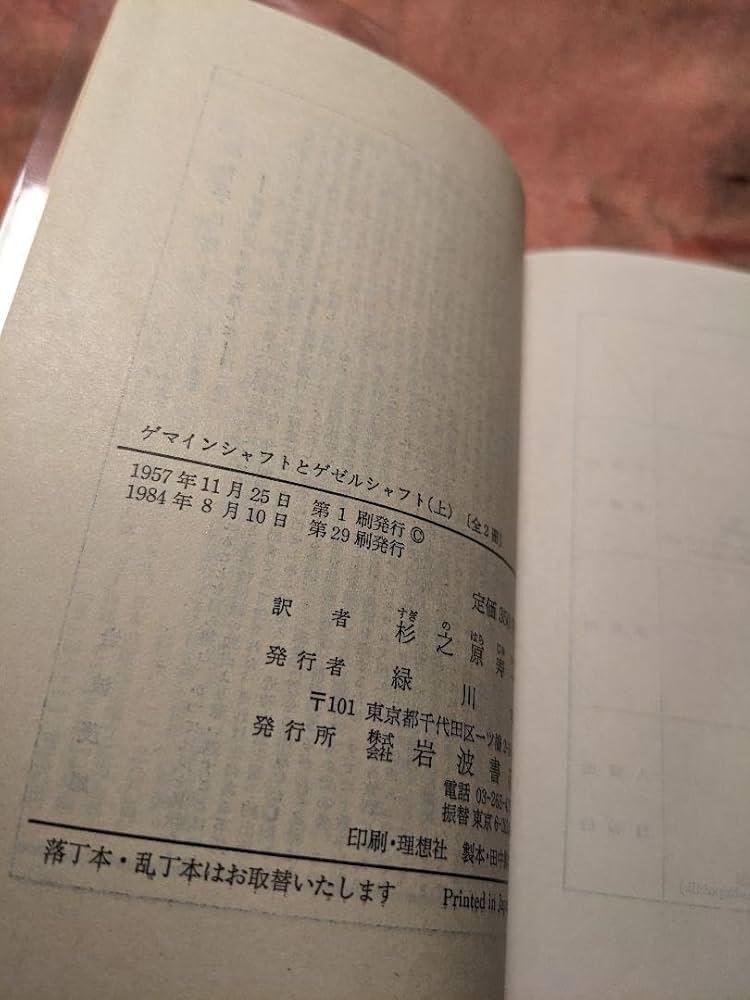 ゲマインシャフトとゲゼルシャフト(上)〔全2冊〕
1957年11月25日 第1刷発行©
1984年8月10日 第29刷発行
定価350
訳者 杉之原寿
すぎのはらじゅ
発行者 緑川
〒101 東京都千代田区一ツ橋2-
発行所 株式会社 岩波書
電話 03-265-4
振替東京6-
印刷・理想社 製本・田中
落丁本・乱丁本はお取替いたします
Printed in Jap